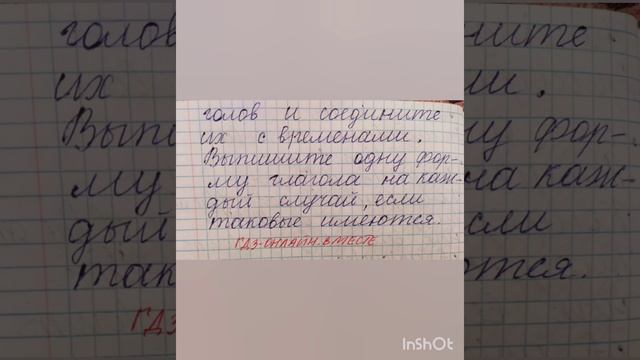 голов и соедините
их с временами.
Выпишите одну фор-
му глагола на каж-
дый случай, если
таковые имеются.
ГДЗ-ОНЛАЙН. ВМЕСТЕ
InShOt